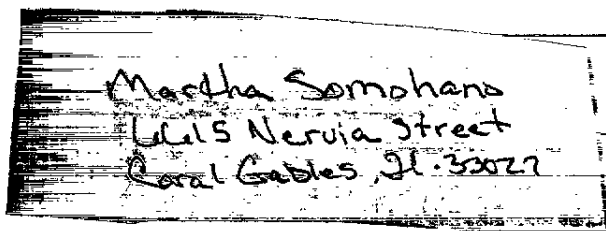 Martha Somohano
6615 Nervia Street
Coral Gables, Fl. 33027